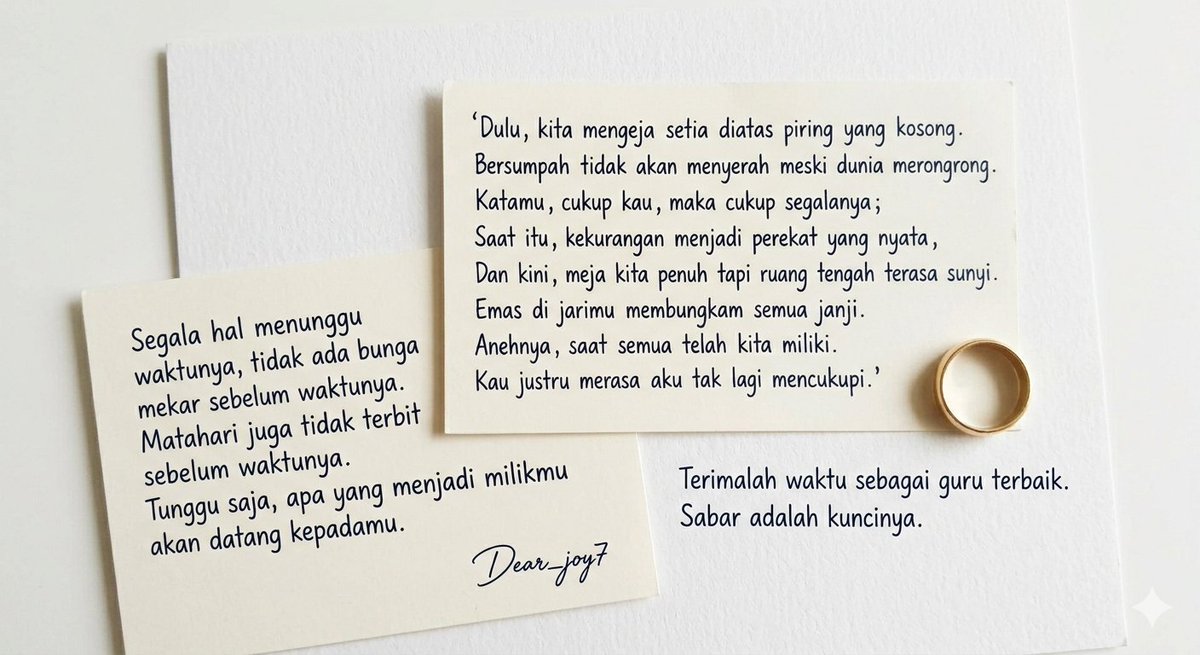 'Dulu, kita mengeja setia diatas piring yang kosong.
Bersumpah tidak akan menyerah meski dunia merongrong.
Katamu, cukup kau, maka cukup segalanya;
Saat itu, kekurangan menjadi perekat yang nyata,
Dan kini, meja kita penuh tapi ruang tengah terasa sunyi.
Emas di jarimu membungkam semua janji.
Anehnya, saat semua telah kita miliki.
Kau justru merasa aku tak lagi mencukupi.'
Segala hal menunggu
waktunya, tidak ada bunga
mekar sebelum waktunya.
Matahari juga tidak terbit
sebelum waktunya.
Tunggu saja, apa yang menjadi milikmu
akan datang kepadamu.
Dear_joy7
Terimalah waktu sebagai guru terbaik.
Sabar adalah kuncinya.